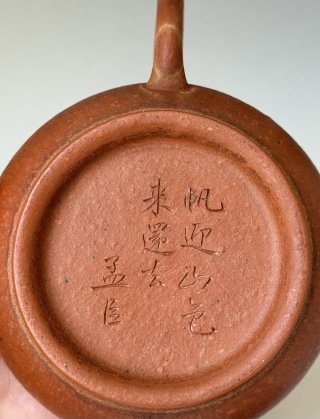 帆迎山色
來還去
孟臣